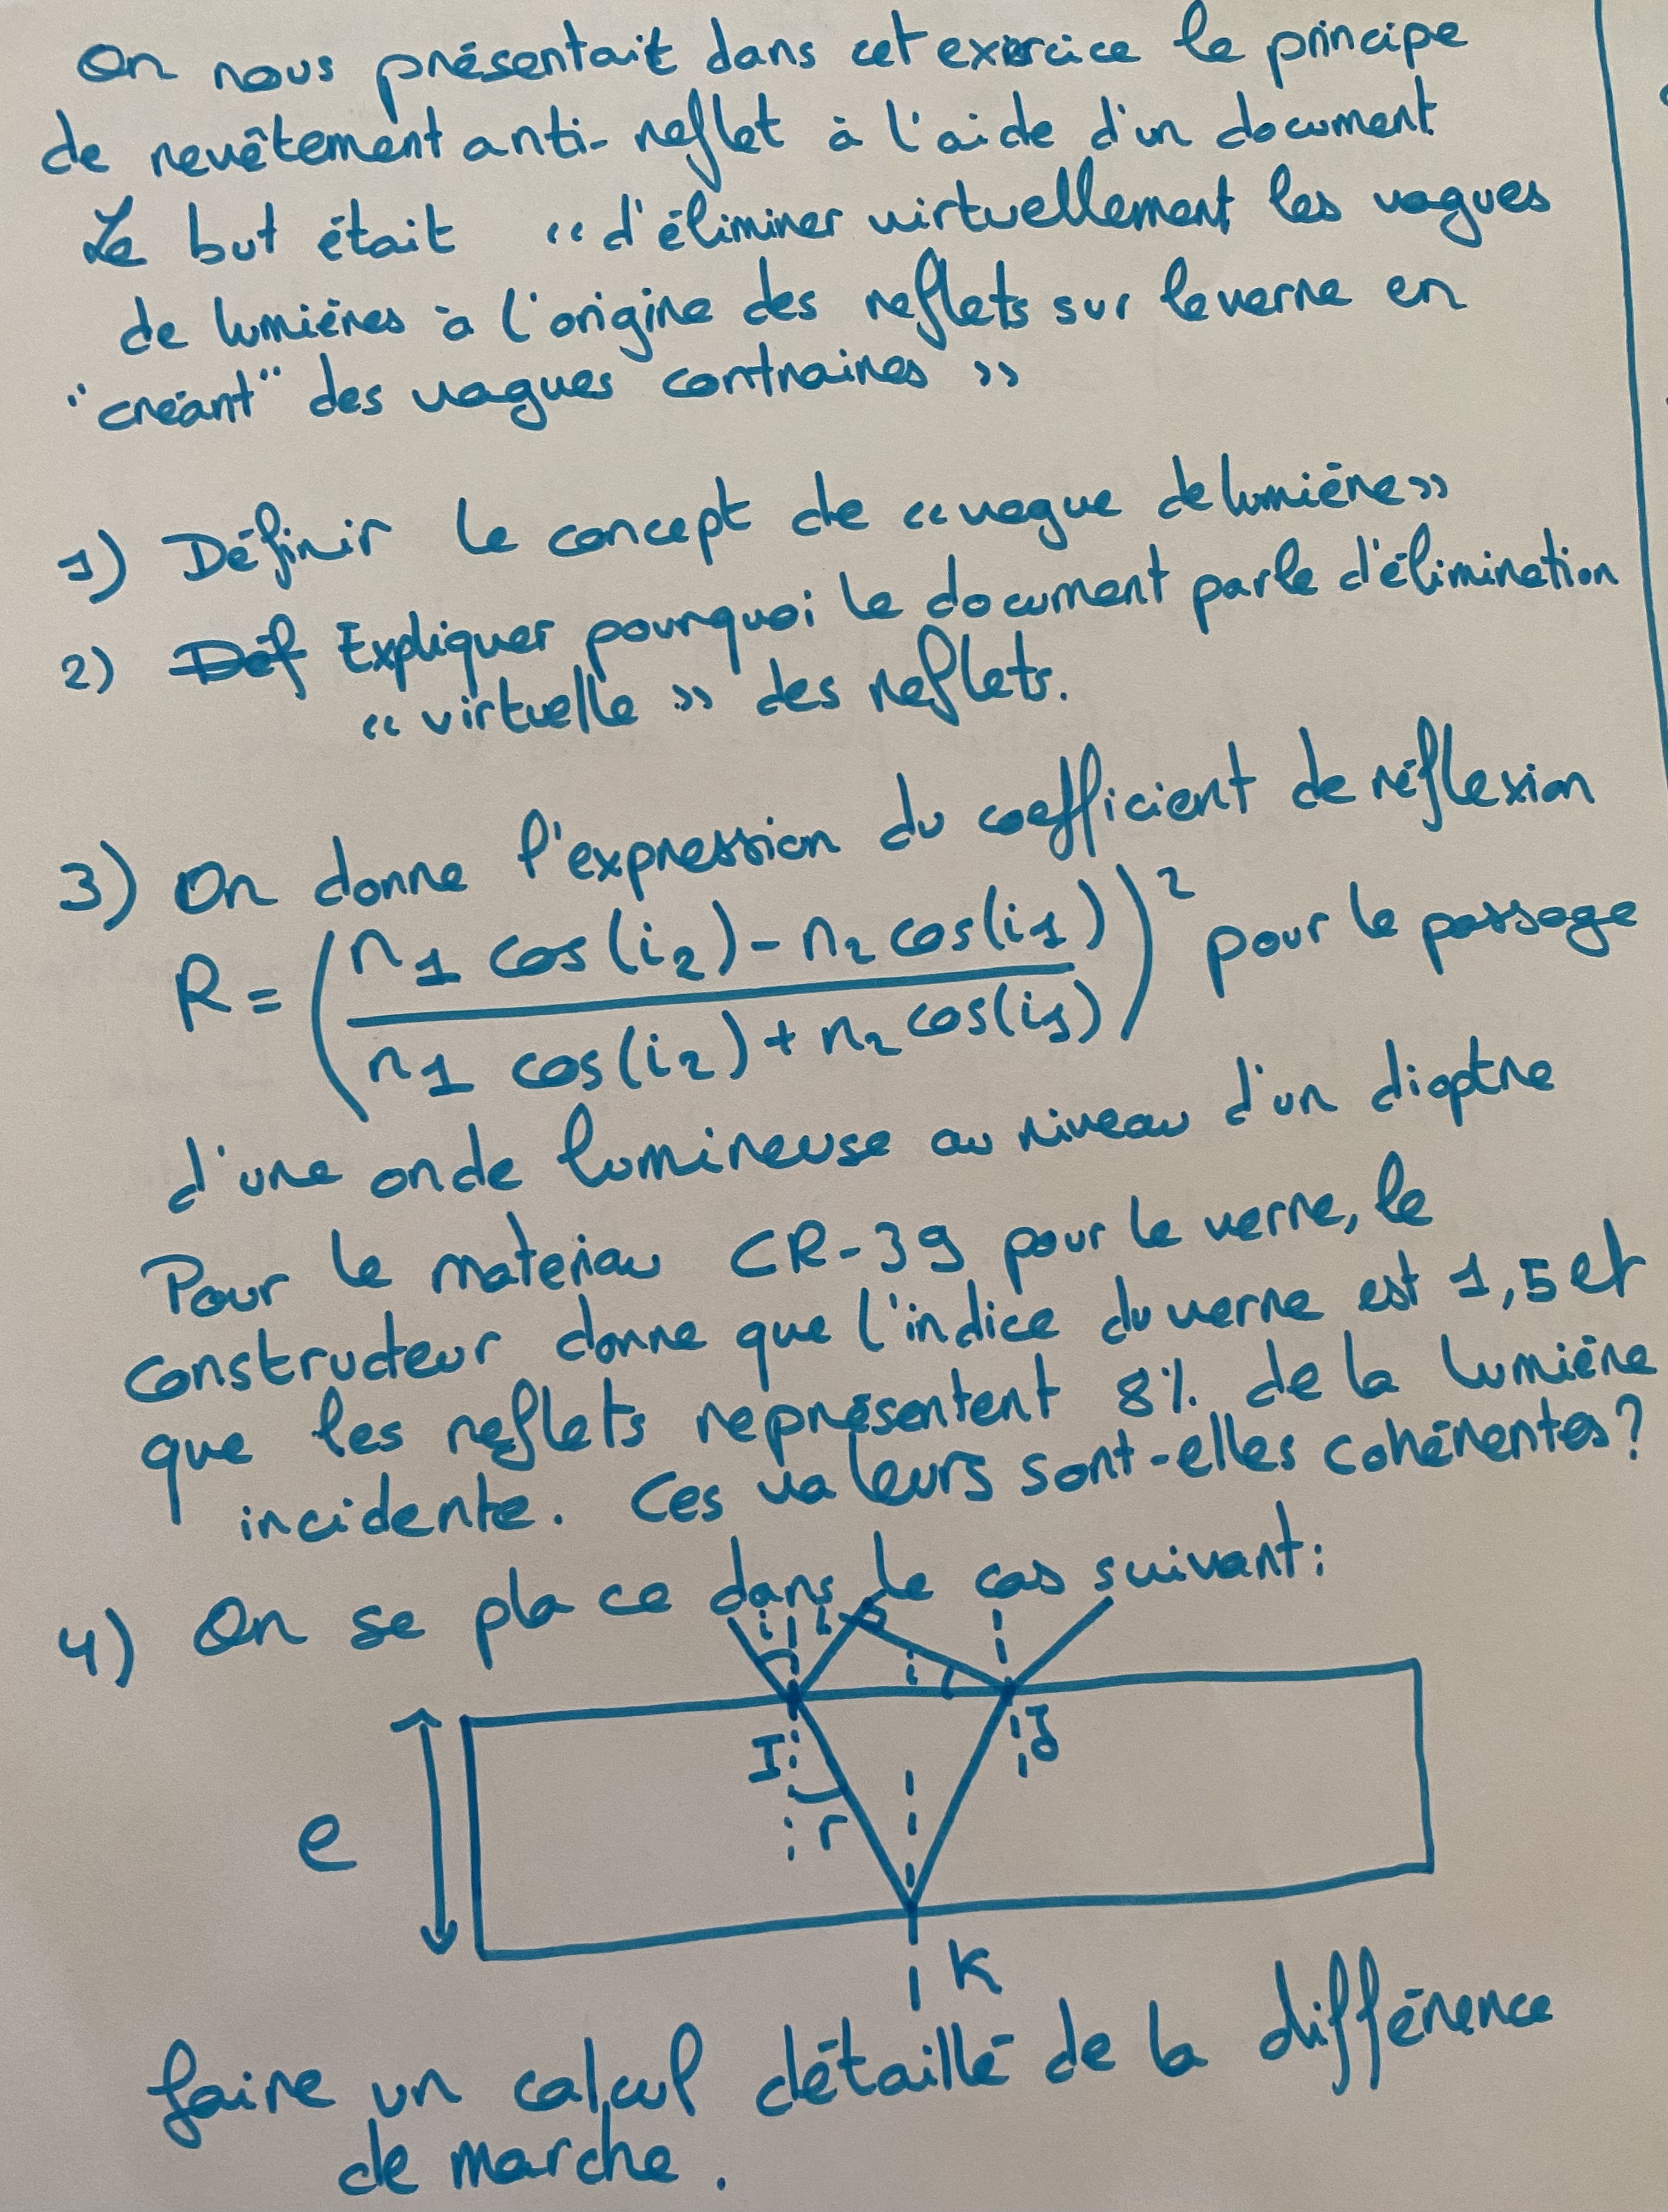 On nous présentait dans cet exercice le principe
de revêtement anti-reflet à l'aide d'un document
Le but était « d'éliminer virtuellement les vagues
de lumières à l'origine des reflets sur le verre en
"créant" des vagues contraires »
1) Définir le concept de « vague de lumière »
2) Déf Expliquer pourquoi le document parle d'élimination
« virtuelle » des reflets.
3) On donne l'expression du coefficient de réflexion
R = ( (n1 cos(i2) - n2 cos(i1)) / (n1 cos(i2) + n2 cos(i1)) )² pour le passage
d'une onde lumineuse au niveau d'un dioptre
Pour le materiau CR-39 pour le verre, le
constructeur donne que l'indice du verre est 1,5 et
que les reflets représentent 8% de la lumière
incidente. Ces valeurs sont-elles cohérentes?
4) On se place dans le cas suivant:
i i
i
I J
e r
K
faire un calcul détaillé de la différence
de marche.